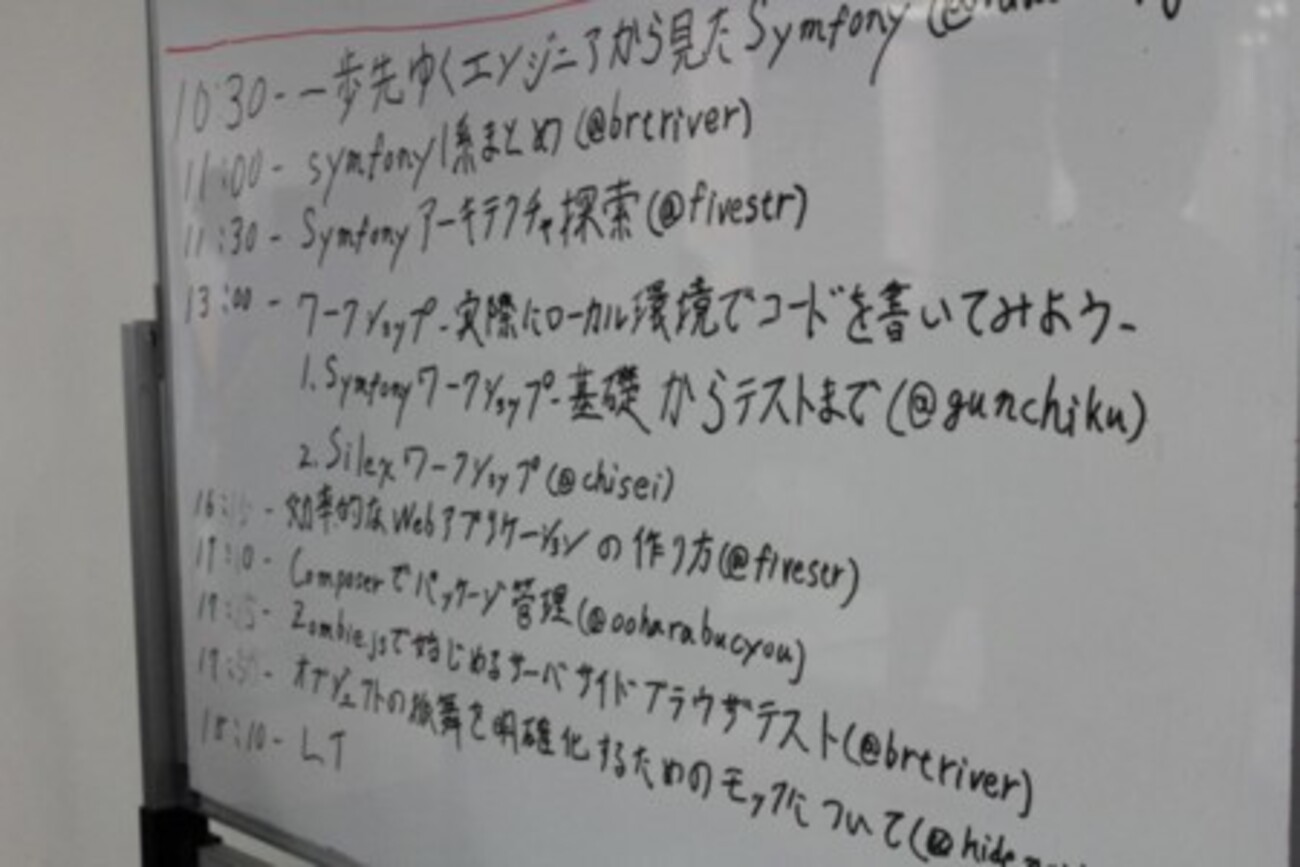 10:30- 一歩先ゆくエンジニアから見たSymfony
11:00- symfony1系まとめ(@brtriver)
11:30- Symfonyアーキテクチャ探索(@fivestr)
13:00- ワークショップ-実際にローカル環境でコードを書いてみよう-
1. Symfonyワークショップ-基礎からテストまで(@gunchiku)
2. Silexワークショップ(@chisei)
効率的なWebアプリケーションの作り方(@fivestr)
Composerでパッケージ管理(@ooharabucyou)
Zombie.jsで始じめるサーバサイドブラウザテスト(@brtriver)
オブジェクトの振舞を明確化するためのモックについて
18:10- LT